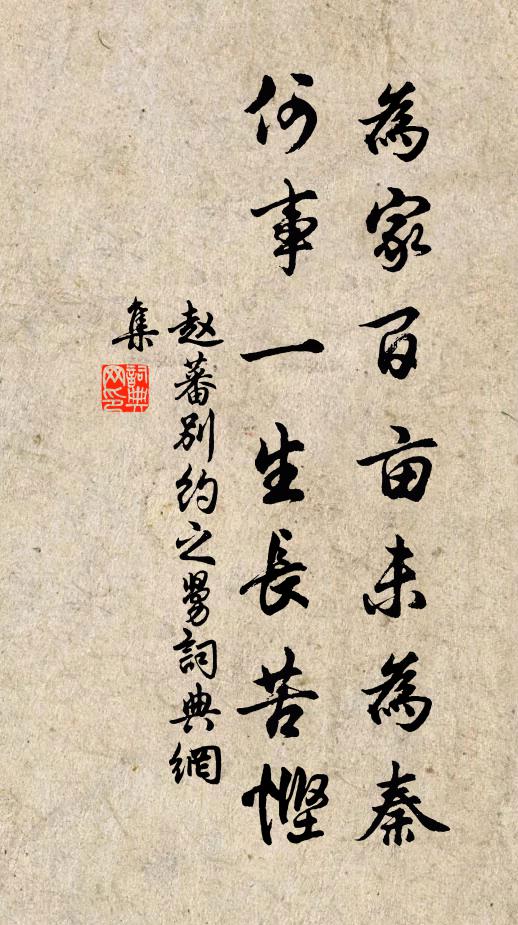 為家百亩未為泰
何事一生長苦慳
赵蕃别约之舅詞典網
集
詞典
网印